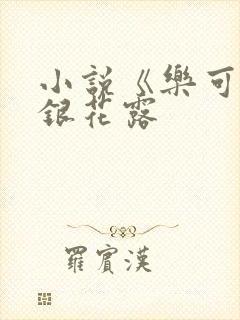 小説《樂可
銀花露
羅賓漢